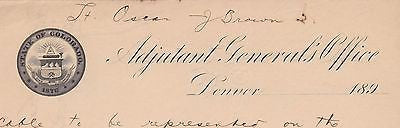 Lt. Oscar J Brown
STATE OF COLORADO
1876
Adjutant General's Office
Denver 189
cable to be represented on the